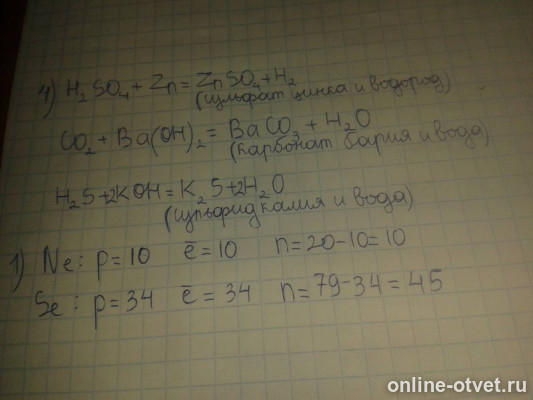 4) H₂SO₄ + Zn = ZnSO₄ + H₂
(сульфат цинка и водород)
CO₂ + Ba(OH)₂ = BaCO₃ + H₂O
(карбонат бария и вода)
H₂S + 2KOH = K₂S + 2H₂O
(сульфид калия и вода)
1) Ne: p = 10 ē = 10 n = 20 - 10 = 10
Se: p = 34 ē = 34 n = 79 - 34 = 45
online-otvet.ru